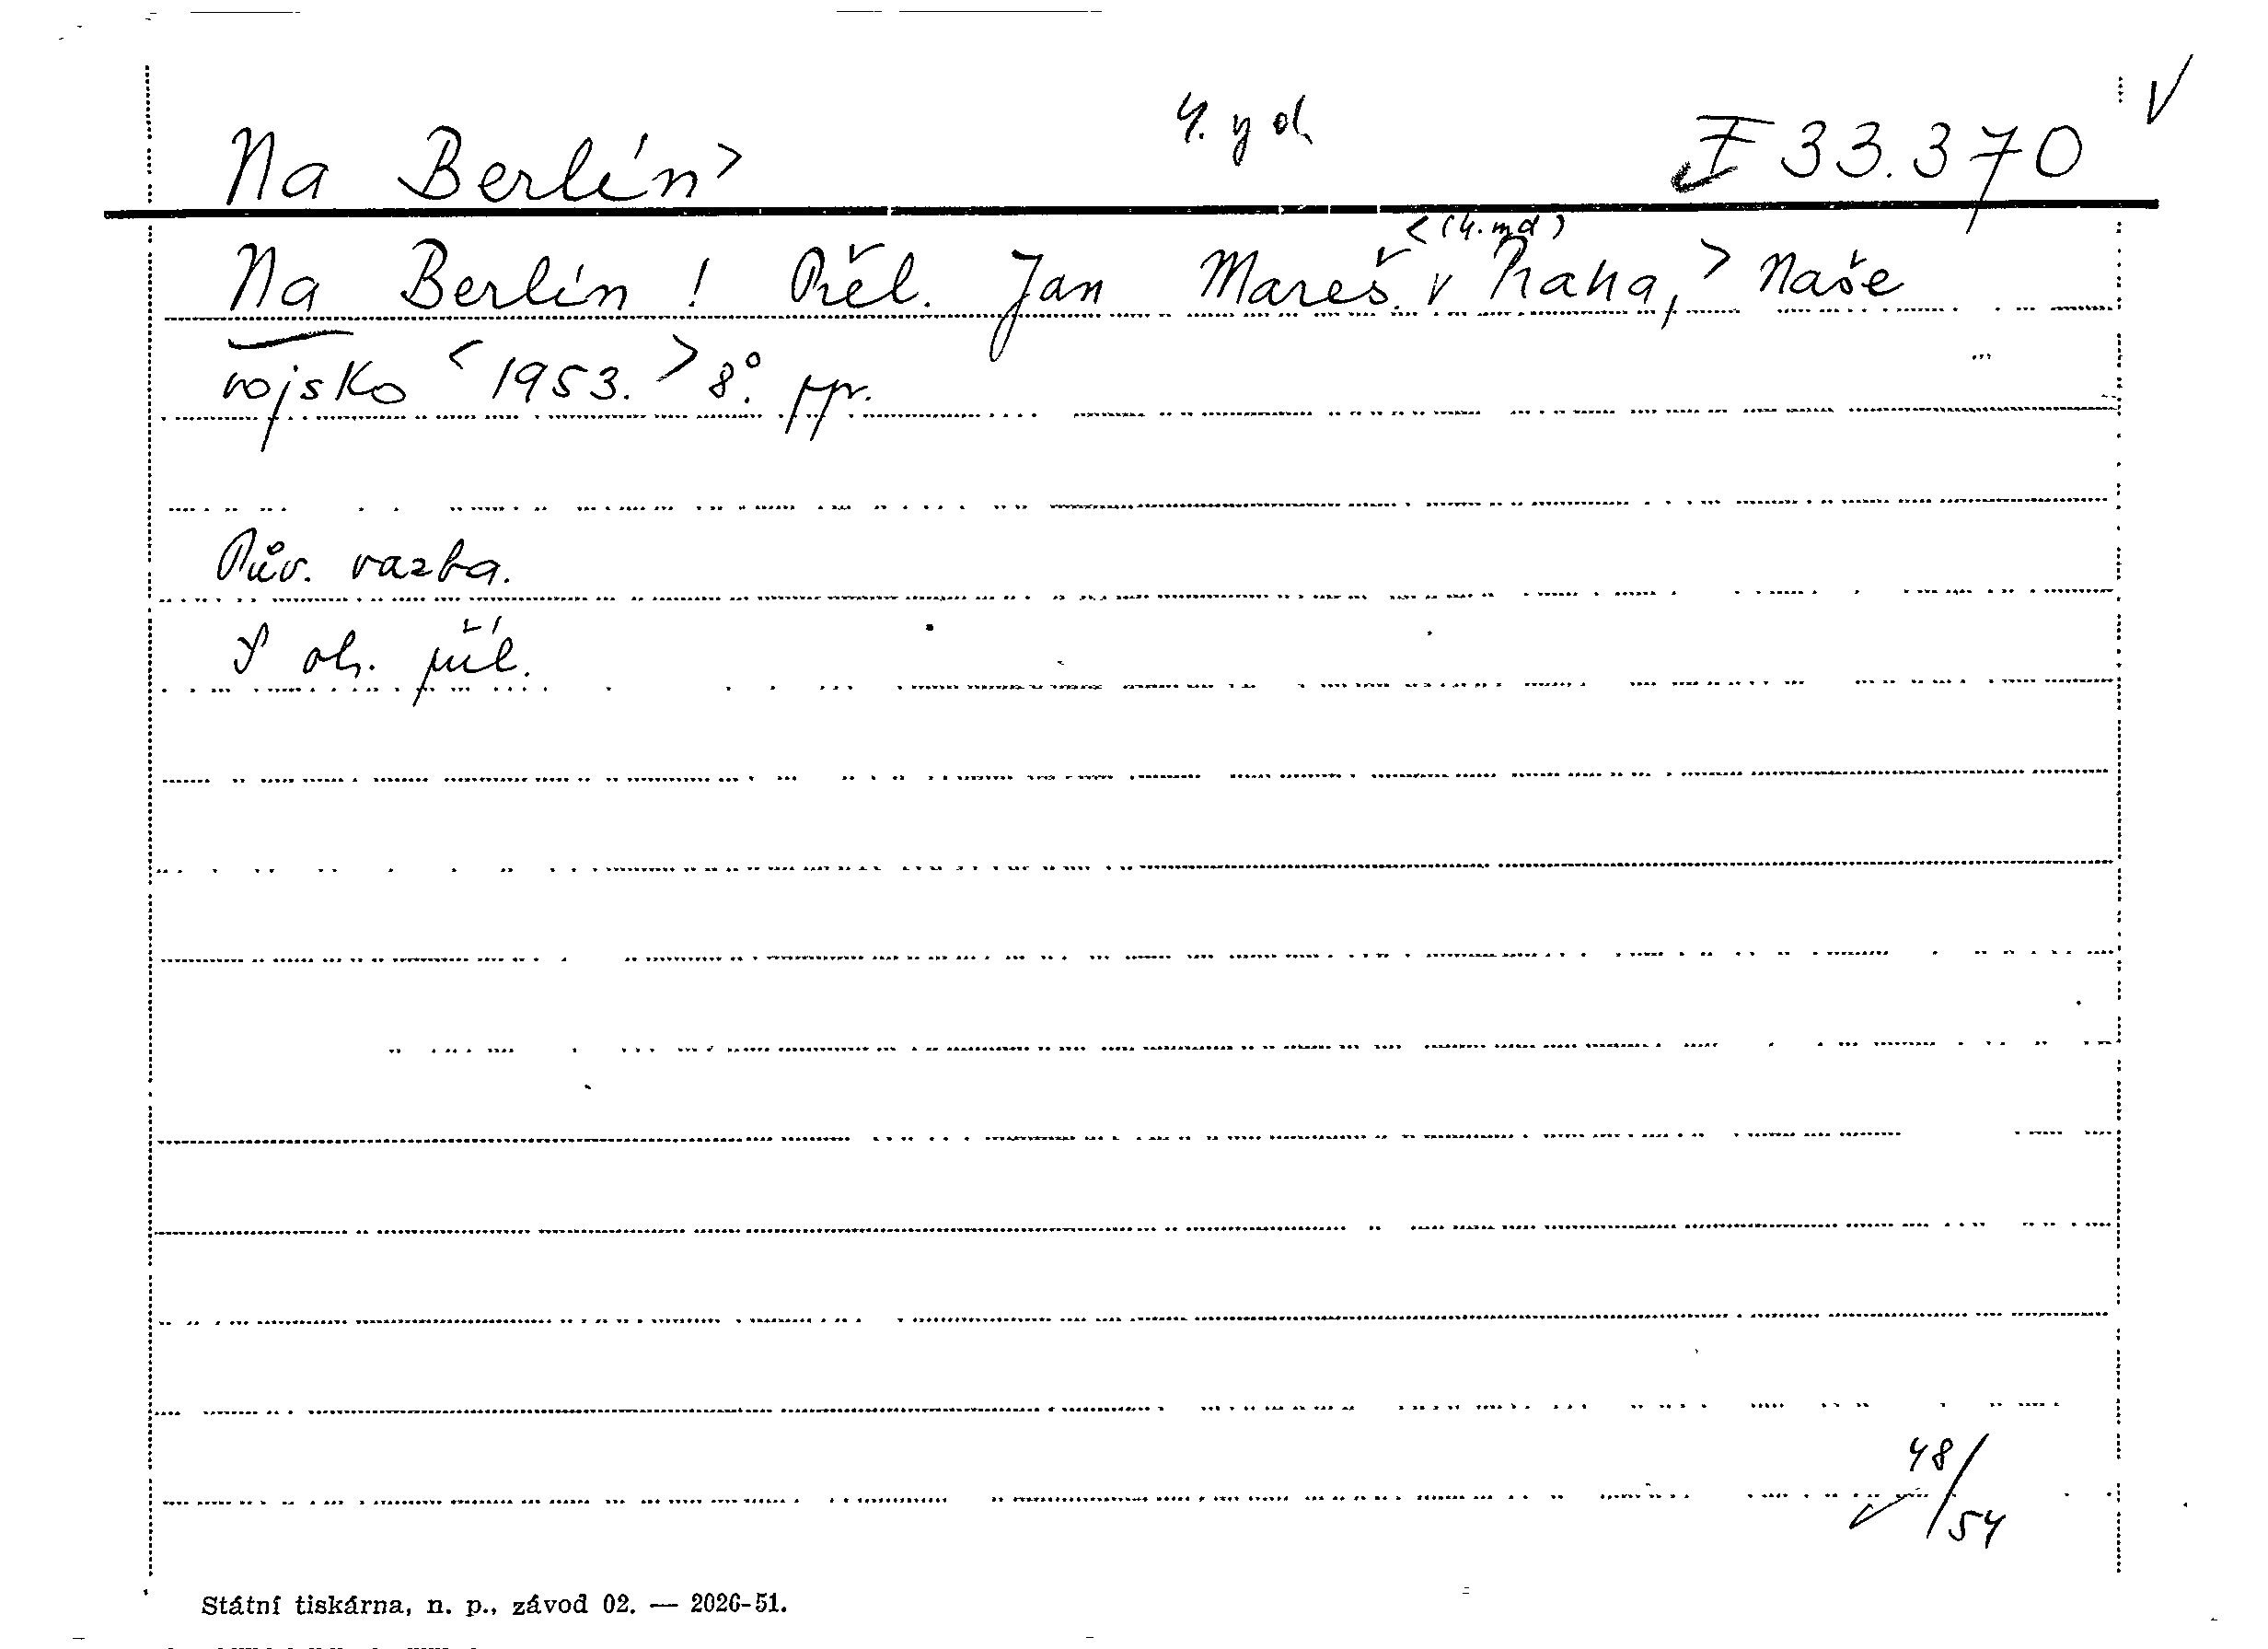 Na Berlín> 4. vyd. I 33.370
<(4. vyd)
Na Berlín! Přel. Jan Mareš. v Praha,> Naše
vojsko <1953.> 8°. ppr.
Pův. vazba.
S ob. příl.
48/54
Státní tiskárna, n. p., závod 02. — 2026-51.